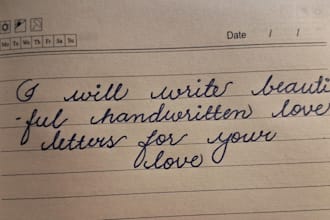 Date / /
Mo Tu We Th Fr Sa Su
I will write beauti
-ful handwritten love
letters for your
love